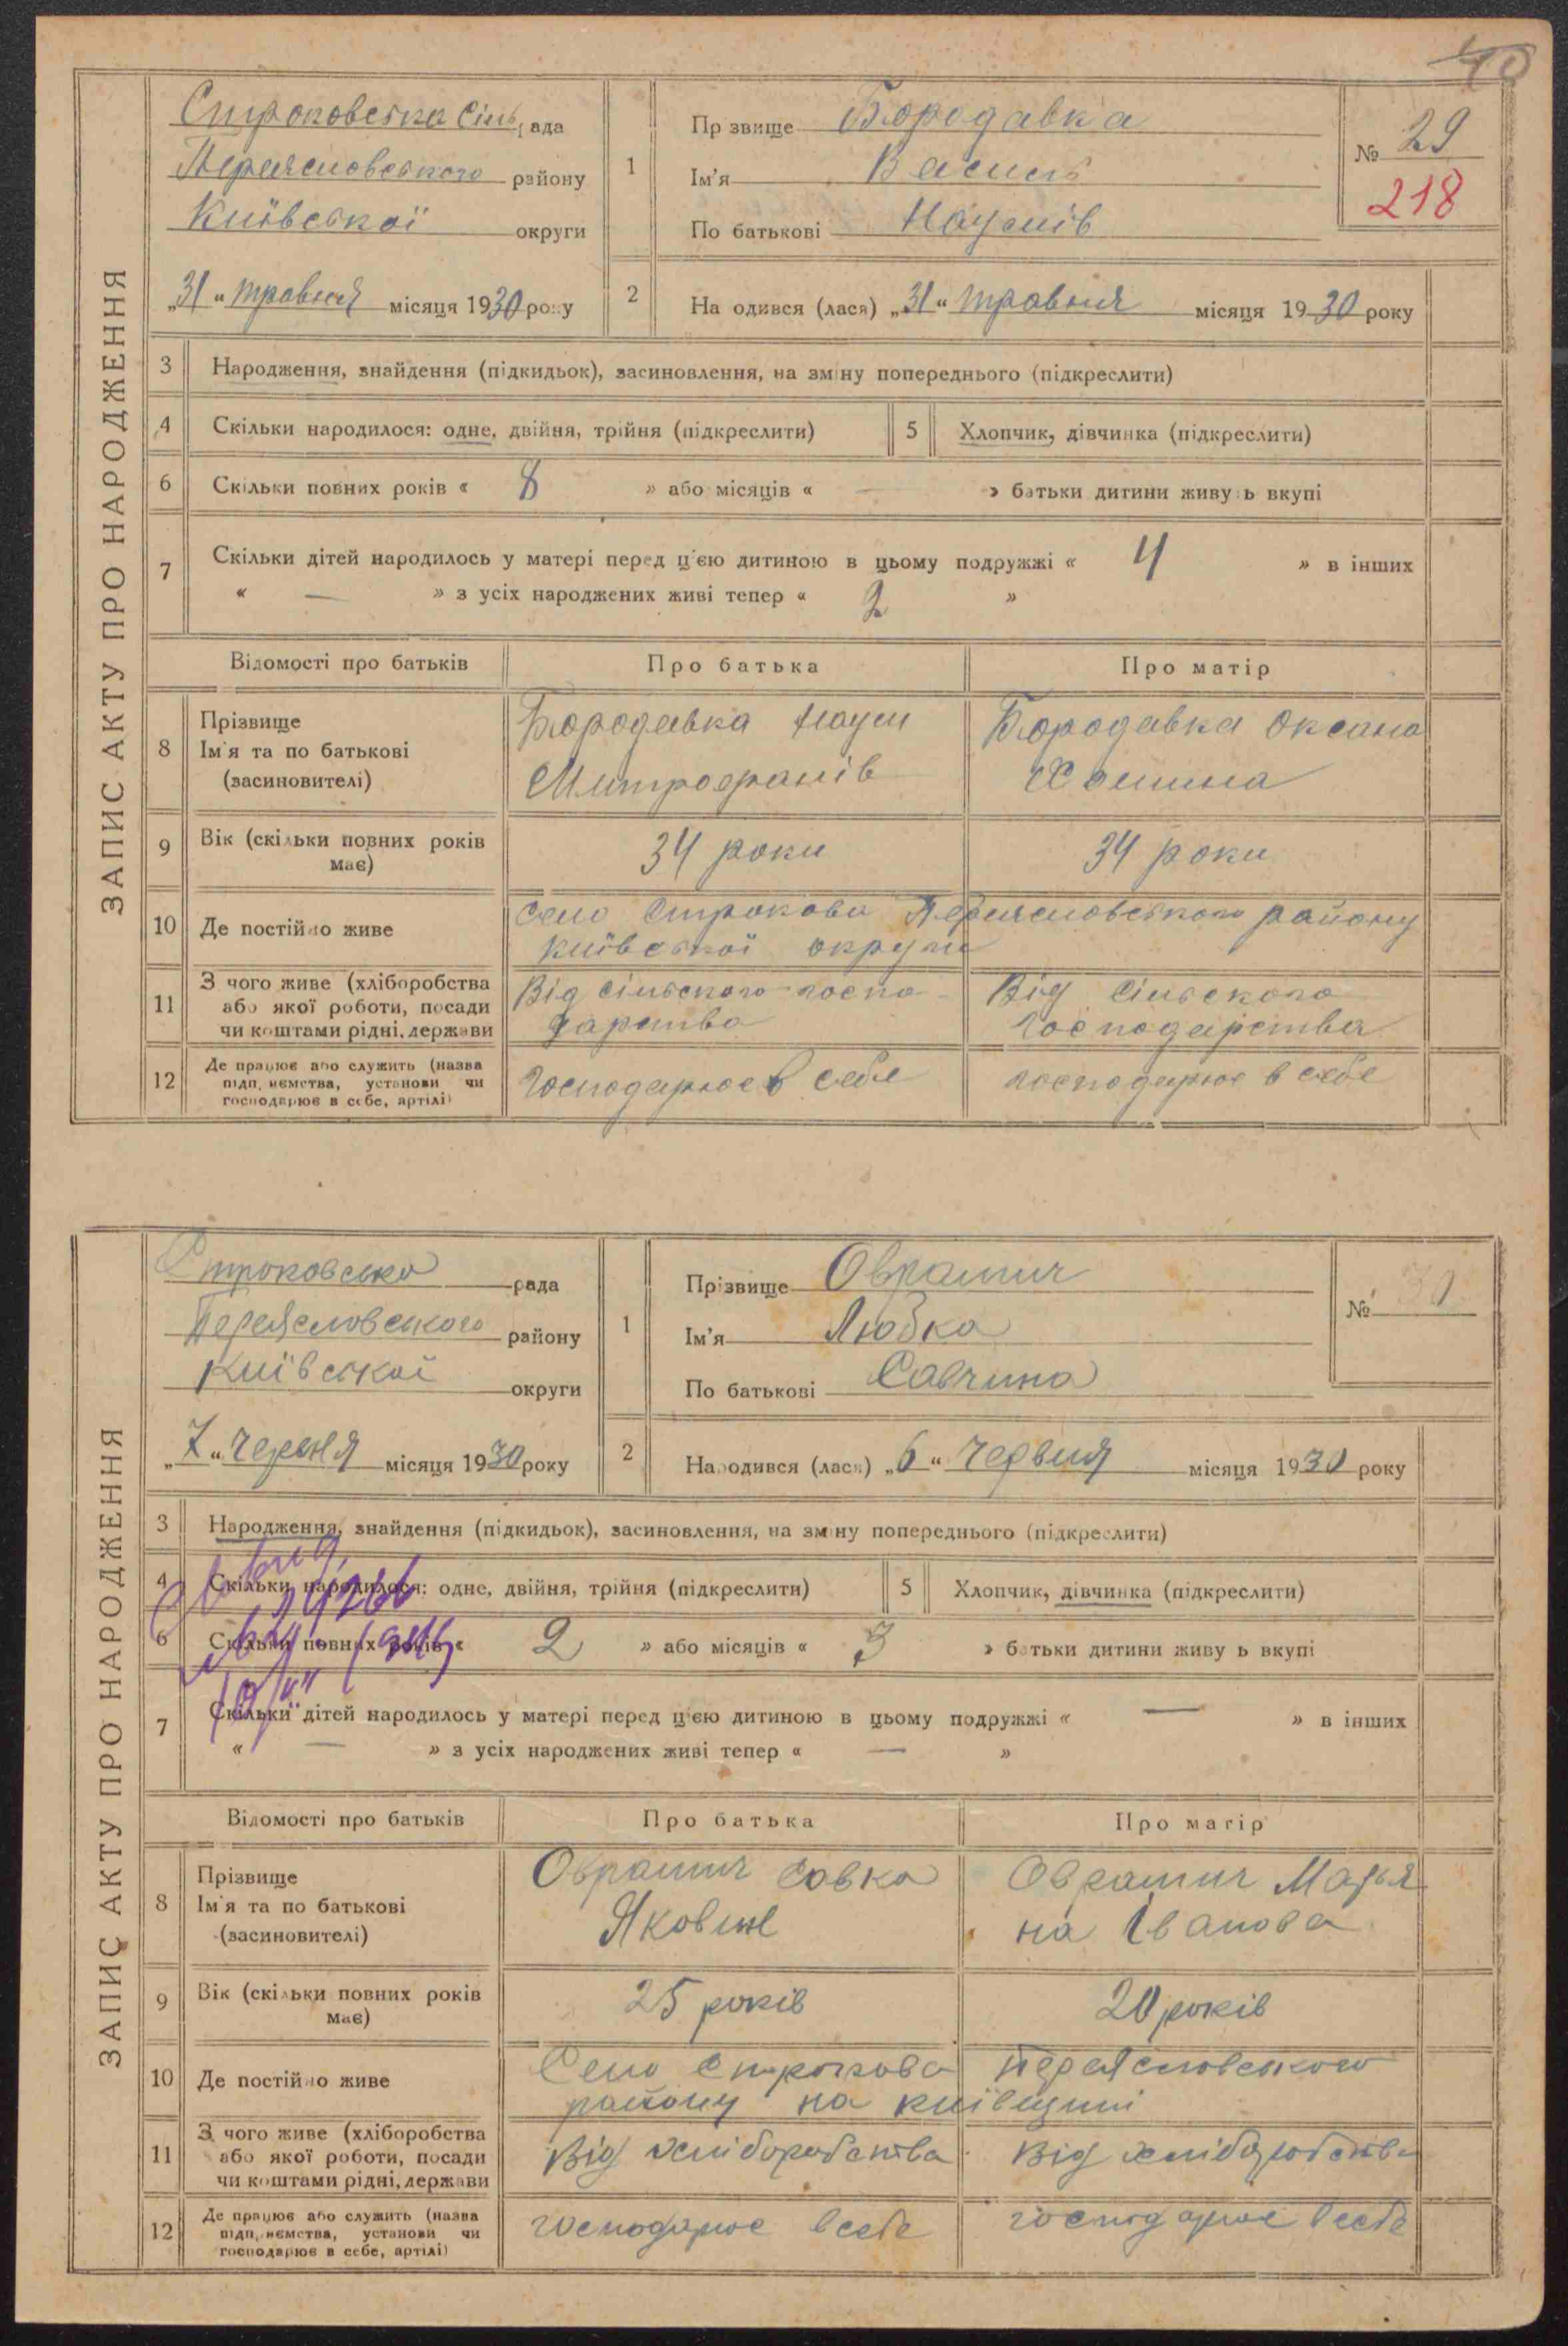 40
ЗАПИС АКТУ ПРО НАРОДЖЕННЯ
Строковська сіль рада
Переясловського району
Київської округи
„31“ травня місяця 1930 року
1
Прізвище Бородавка
Ім'я Василь
По батькові Наумів
№ 29
218
2
Народився (лася) „31“ травня місяця 1930 року
3 Народження, знайдення (підкидьок), засиновлення, на зміну попереднього (підкреслити)
4 Скільки народилося: одне, двійня, трійня (підкреслити)
5 Хлопчик, дівчинка (підкреслити)
6 Скільки повних років « 8 » або місяців « — » батьки дитини живуть вкупі
7 Скільки дітей народилось у матері перед ц'єю дитиною в цьому подружжі « 4 » в інших
« — » з усіх народжених живі тепер « 2 »
Відомості про батьків Про батька Про матір
8 Прізвище
Ім'я та по батькові
(засиновителі)
Бородавка Наум
Митрофанів
Бородавка Оксана
Хомина
9 Вік (скільки повних років
має)
34 роки
34 роки
10 Де постійно живе
село Строкова Переясловського району
Київської округи
11 З чого живе (хліборобства
або якої роботи, посади
чи коштами рідні, держави
Від сільского госпо-
дарства
Від сільского
господарства
12 Де працює або служить (назва
підприємства, установи чи
господарює в себе, артілі)
господарює в себе
господарює в себе
ЗАПИС АКТУ ПРО НАРОДЖЕННЯ
Строковська рада
Переясловського району
Київської округи
„7“ червня місяця 1930 року
1
Прізвище Оврамич
Ім'я Любка
По батькові Савчина
№ 30
2
Народився (лася) „6“ червня місяця 1930 року
3 Народження, знайдення (підкидьок), засиновлення, на зміну попереднього (підкреслити)
4 Скільки народилося: одне, двійня, трійня (підкреслити)
5 Хлопчик, дівчинка (підкреслити)
6 Скільки повних років « 2 » або місяців « 3 » батьки дитини живуть вкупі
7 Скільки дітей народилось у матері перед ц'єю дитиною в цьому подружжі « — » в інших
« — » з усіх народжених живі тепер « — »
Відомості про батьків Про батька Про матір
8 Прізвище
Ім'я та по батькові
(засиновителі)
Оврамич Савка
Оврамич Марья
на Іванова
9 Вік (скільки повних років
має)
25 років
20 років
10 Де постійно живе
Село Строкова Переясловського
району на київщині
11 З чого живе (хліборобства
або якої роботи, посади
чи коштами рідні, держави
Від хліборобства
Від хліборобства
12 Де працює або служить (назва
підприємства, установи чи
господарює в себе, артілі)
господарює в себе
господарює в себе